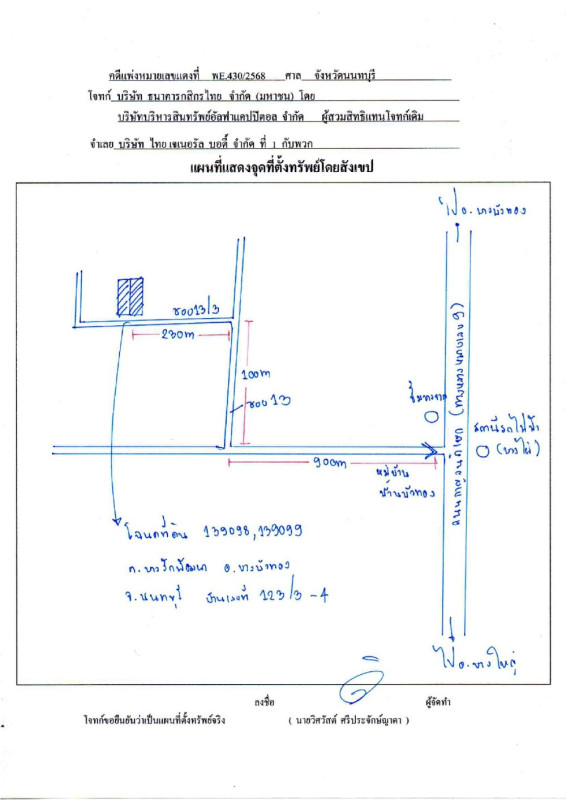 คดีแพ่งหมายเลขแดงที่ พE.430/2568 ศาล จังหวัดนนทบุรี
โจทก์ บริษัท ธนาคารกสิกรไทย จำกัด (มหาชน) โดย
บริษัทบริหารสินทรัพย์อัลฟาแคปปิตอล จำกัด ผู้สวมสิทธิแทนโจทก์เดิม
จำเลย บริษัท ไทย เจเนอรัล บอดี้ จำกัด ที่ 1 กับพวก
แผนที่แสดงจุดที่ตั้งทรัพย์โดยสังเขป
ไป อ.บางบัวทอง
ซอย 13/3
230m
100m
ซอย 13
สถานีรถไฟฟ้า
900m
หมู่บ้าน
บ้านบัวทอง
โฉนดที่ดิน 139098, 139099
ต. บางรักพัฒนา อ. บางบัวทอง
จ. นนทบุรี บ้านเลขที่ 123/3-4
ไป อ.บางใหญ่
ลงชื่อ ผู้จัดทำ
โจทก์ขอยืนยันว่าเป็นแผนที่ตั้งทรัพย์จริง ( นายวิศวัสต์ ศรีประจักษ์ญาดา )